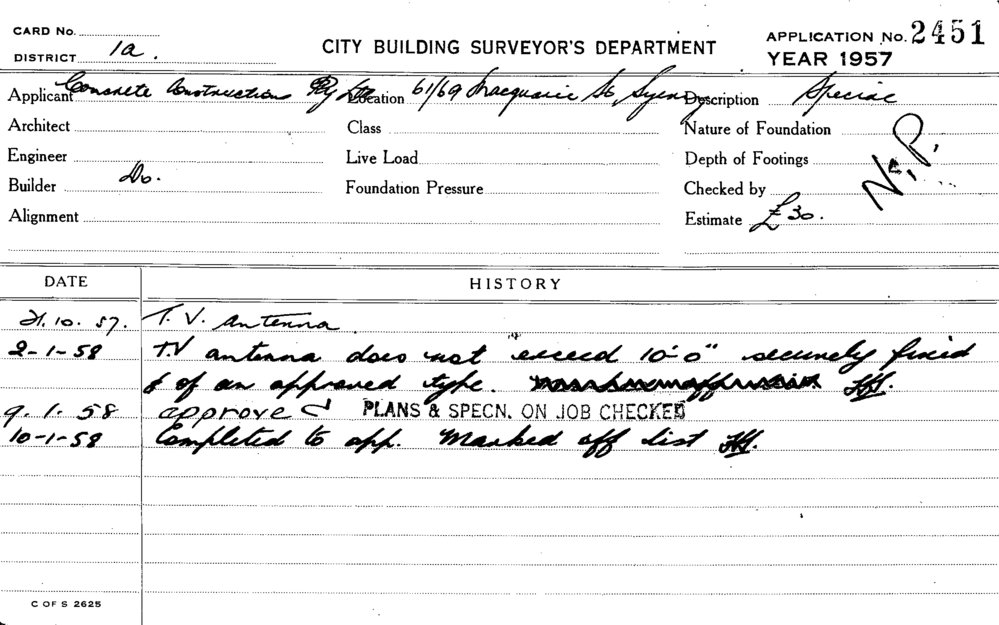 CARD No.
DISTRICT 1a.
CITY BUILDING SURVEYOR'S DEPARTMENT
APPLICATION No. 2451
YEAR 1957
Applicant Concrete Construction Pty Ltd Location 61/69 Macquarie St Sydney Description Special
Architect Class Nature of Foundation
Engineer Live Load Depth of Footings
Builder Do. Foundation Pressure Checked by
N.P.
Alignment Estimate £30.
DATE HISTORY
21.10.57. T.V. antenna
2-1-58 T.V antenna does not exceed 10'0" securely fixed
& of an approved type.
9.1.58 approved PLANS & SPECN. ON JOB CHECKED
10-1-58 Completed to app. Marked off list
C OF S 2625